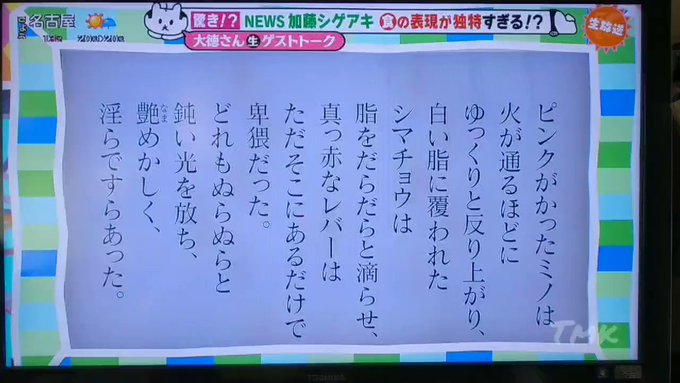 名古屋
驚き!? NEWS加藤シゲアキ 食の表現が独特すぎる!?
生放送
大徳さん生ゲストトーク
ピンクがかったミノは、
火が通るほどに
ゆっくりと反り上がり、
白い脂に覆われた
シマチョウは
脂をだらだらと滴らせ、
真っ赤なレバーは
ただそこにあるだけで
卑猥だった。
どれもぬらぬらと
鈍い光を放ち、
艶めかしく、
なま
淫らですらあった。
TMK
TOSHIBA